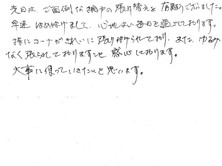 先日は、ご面倒な網戸の張り替えを有難うございました。
早速はめ付けまして、心地よい毎日を過しております。
特にコーナがきれいに張り付けられており、また、ゆるみ
なく張られておりますこと感心しております。
大事に使っていきたいと思います。